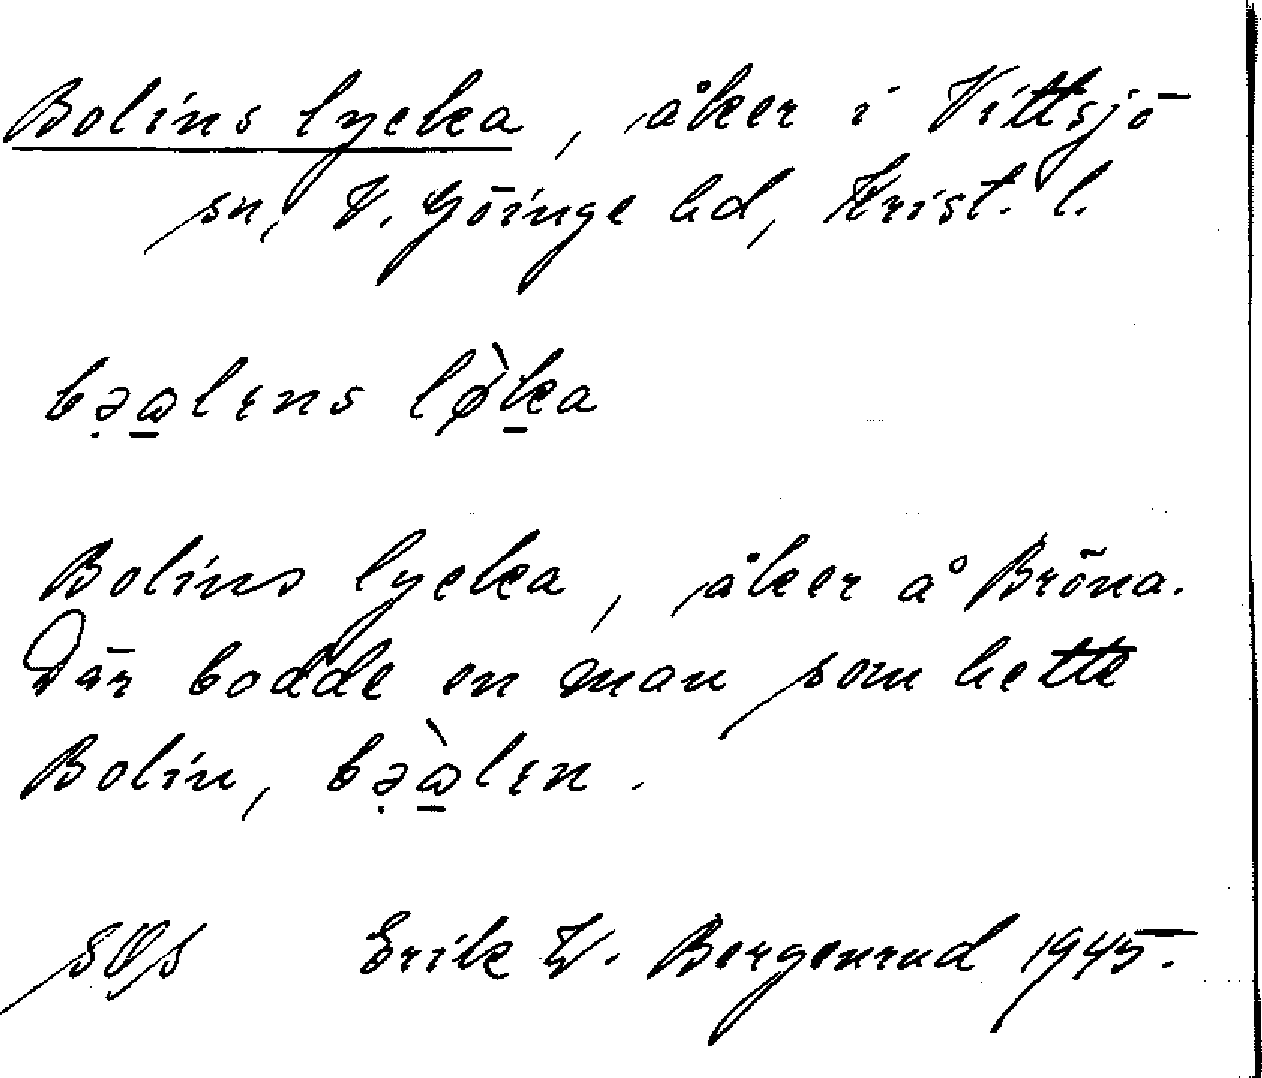 Bolins lycka, åker i Vittsjö
sn, V. Göinge hd, Krist. l.
bə̣ω̱lɪns lø̀ḵa
Bolins lycka, åker å Bröna.
Där bodde en man som hette
Bolin, bə̣ὼ̱lɪn.
Erik W. Bergenrud 1945.